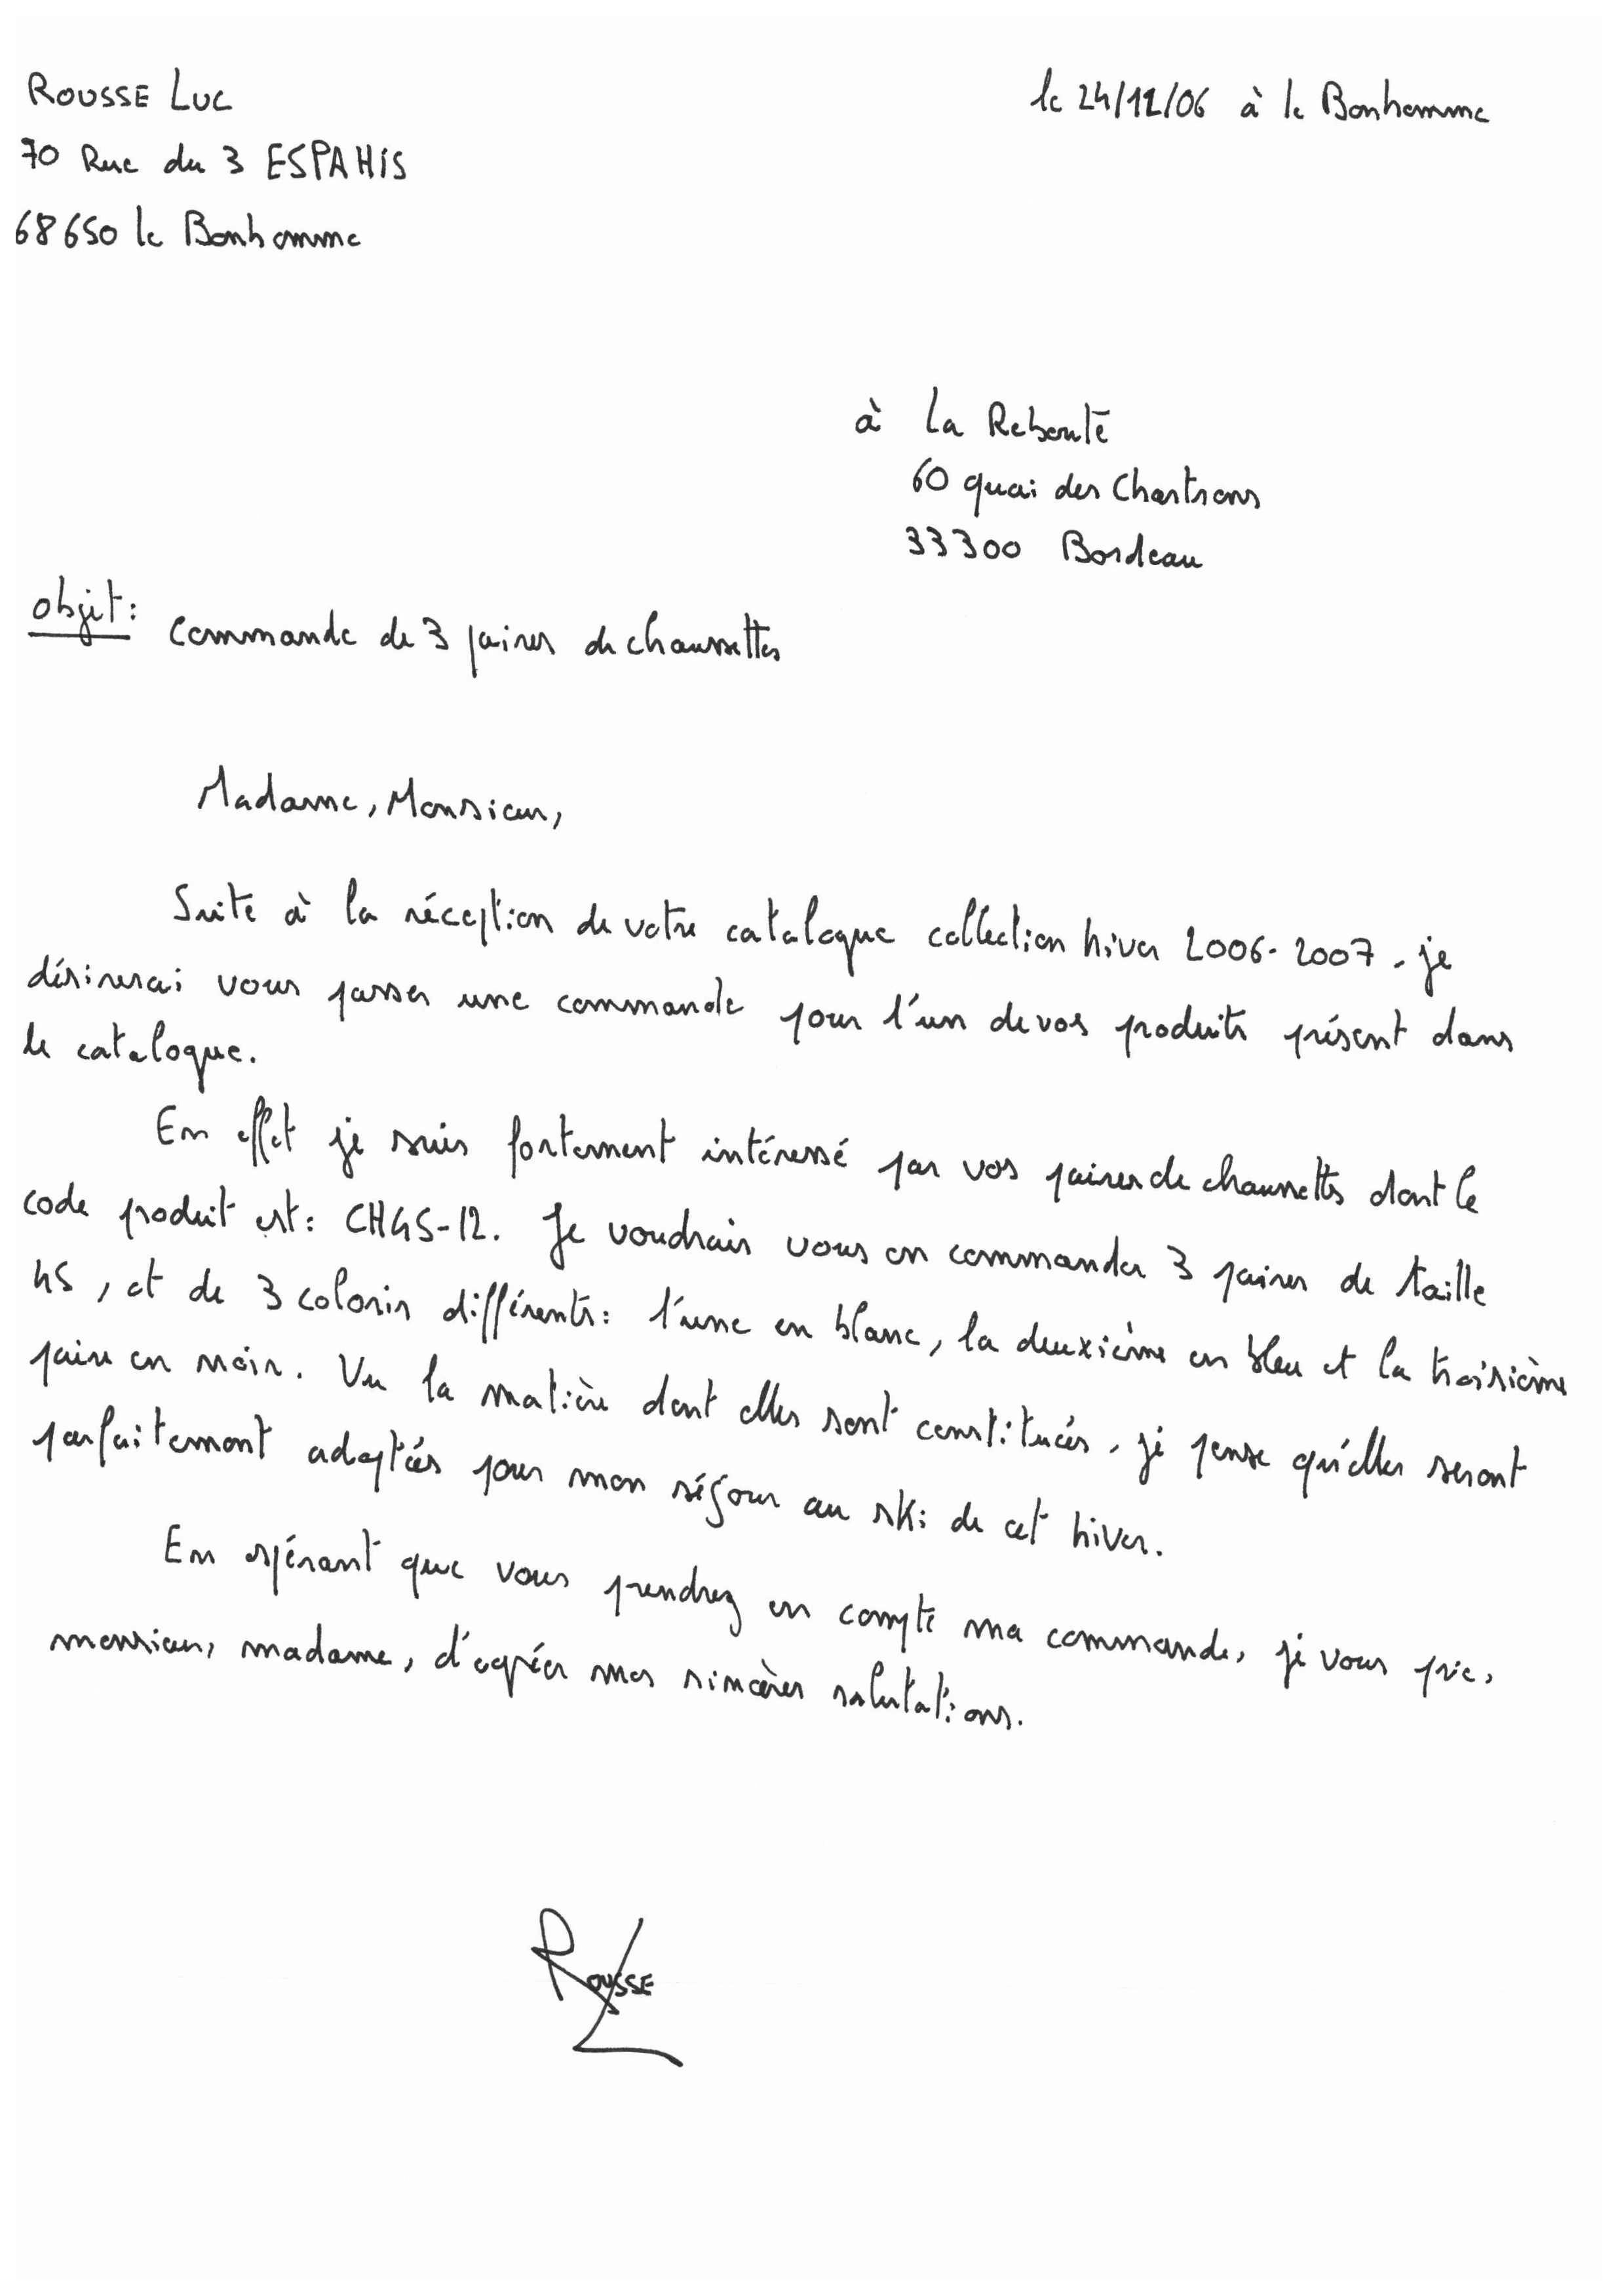 ROUSSE LUC
le 24/12/06 à le Bonhomme
70 Rue du 3 ESPAHIS
68650 le Bonhomme
à La Reboute
60 quai des Chartrons
33300 Bordeau
objet: Commande de 3 paires de chaussettes
Madame, Monsieur,
Suite à la réception de votre catalogue collection hiver 2006-2007, je
désirerai vous passer une commande pour l'un de vos produits présent dans
le catalogue.
En effet je suis fortement intéressé par vos paires de chaussettes dont le
code produit est: CH45-12. Je voudrais vous en commander 3 paires de taille
45, et de 3 coloris différents: l'une en blanc, la deuxième en bleu et la troisième
paire en noir. Vu la matière dont elles sont constituées, je pense qu'elles seront
parfaitement adaptées pour mon séjour au ski de cet hiver.
En espérant que vous prendrez en compte ma commande, je vous prie,
monsieur, madame, d'agréer mes sincères salutations.
ROUSSE